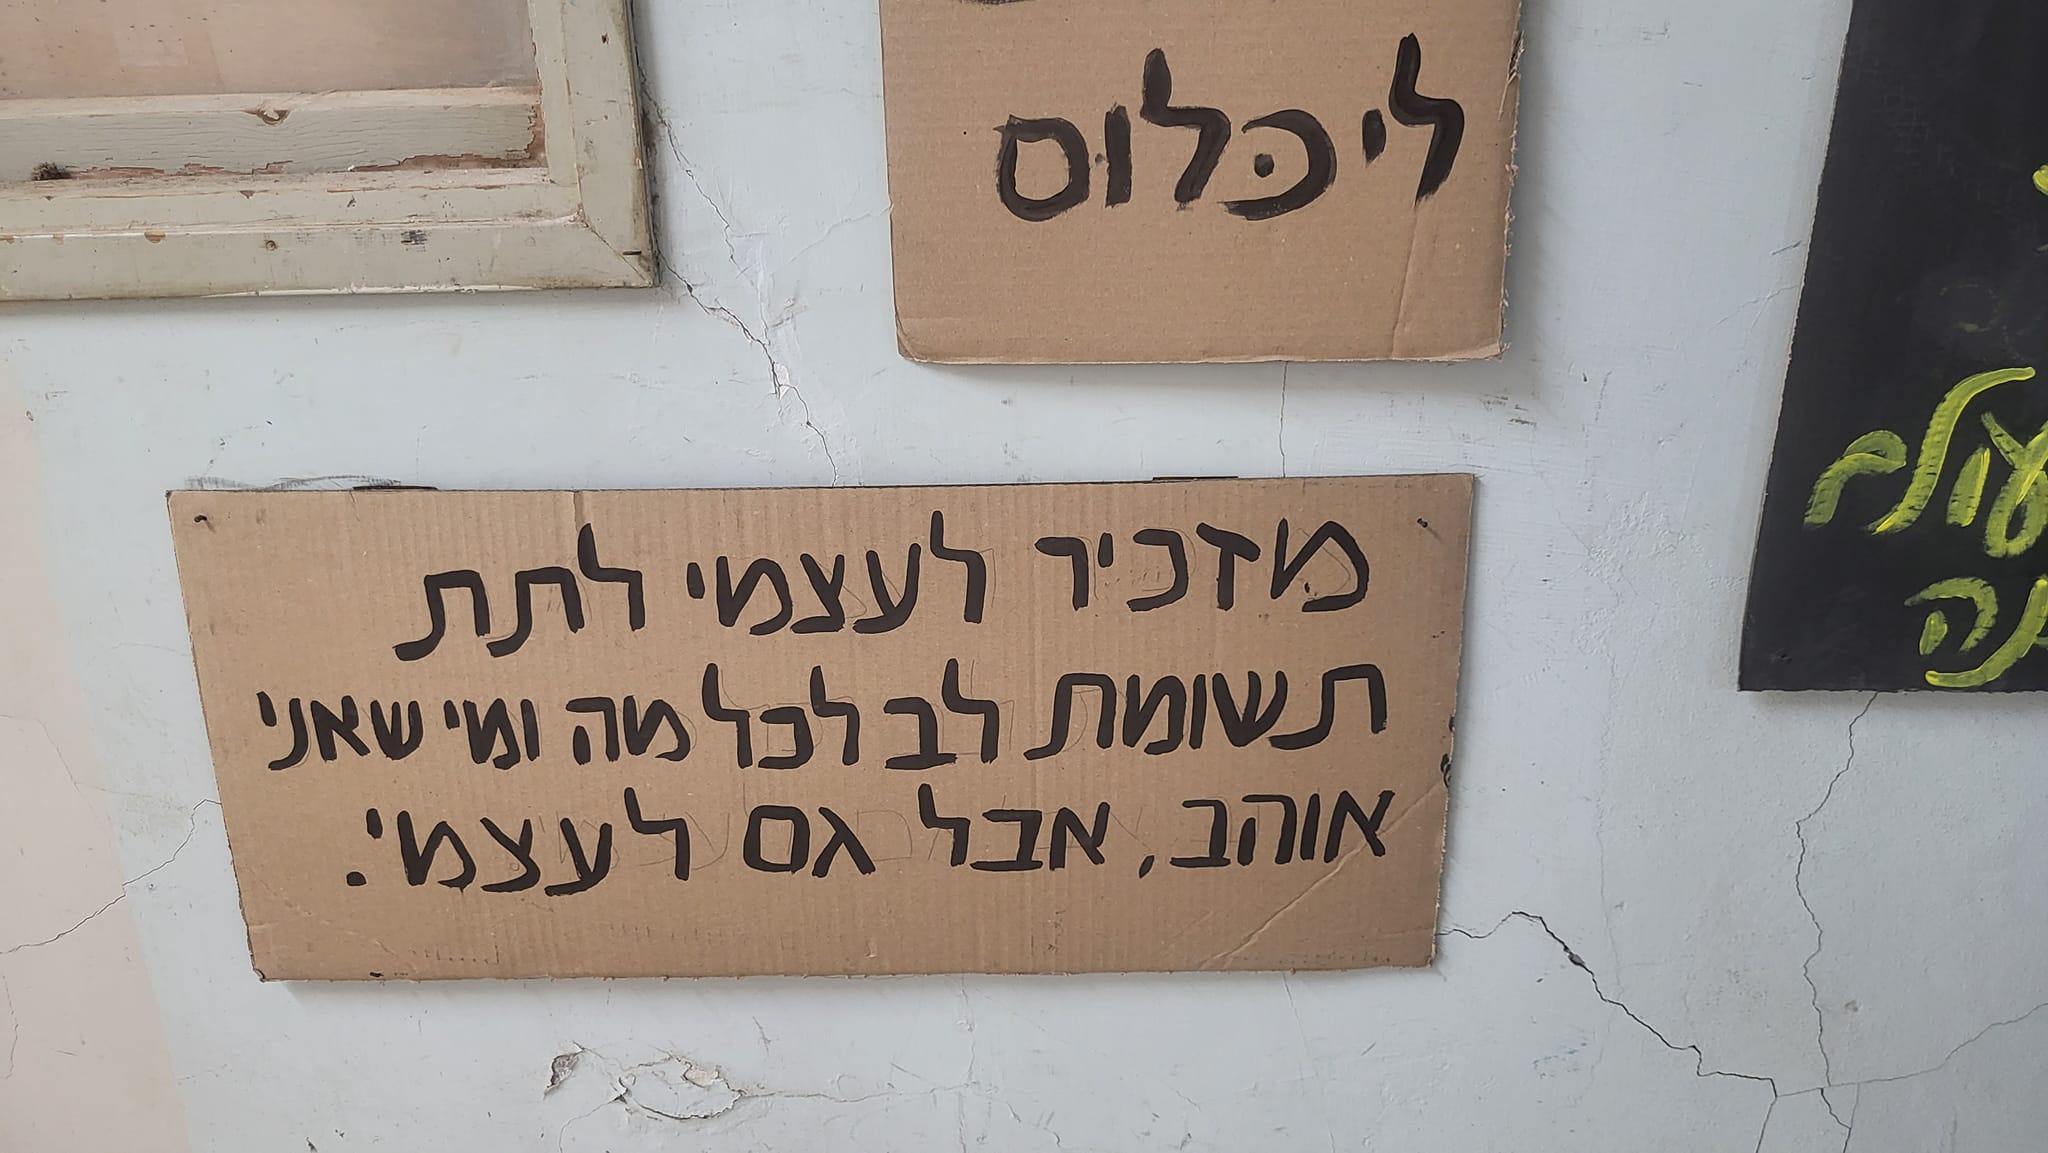 לי כּלום
מזכיר לעצמי לתת
תשומת לב לכל מה ומי שאני
אוהב, אבל גם לעצמי.